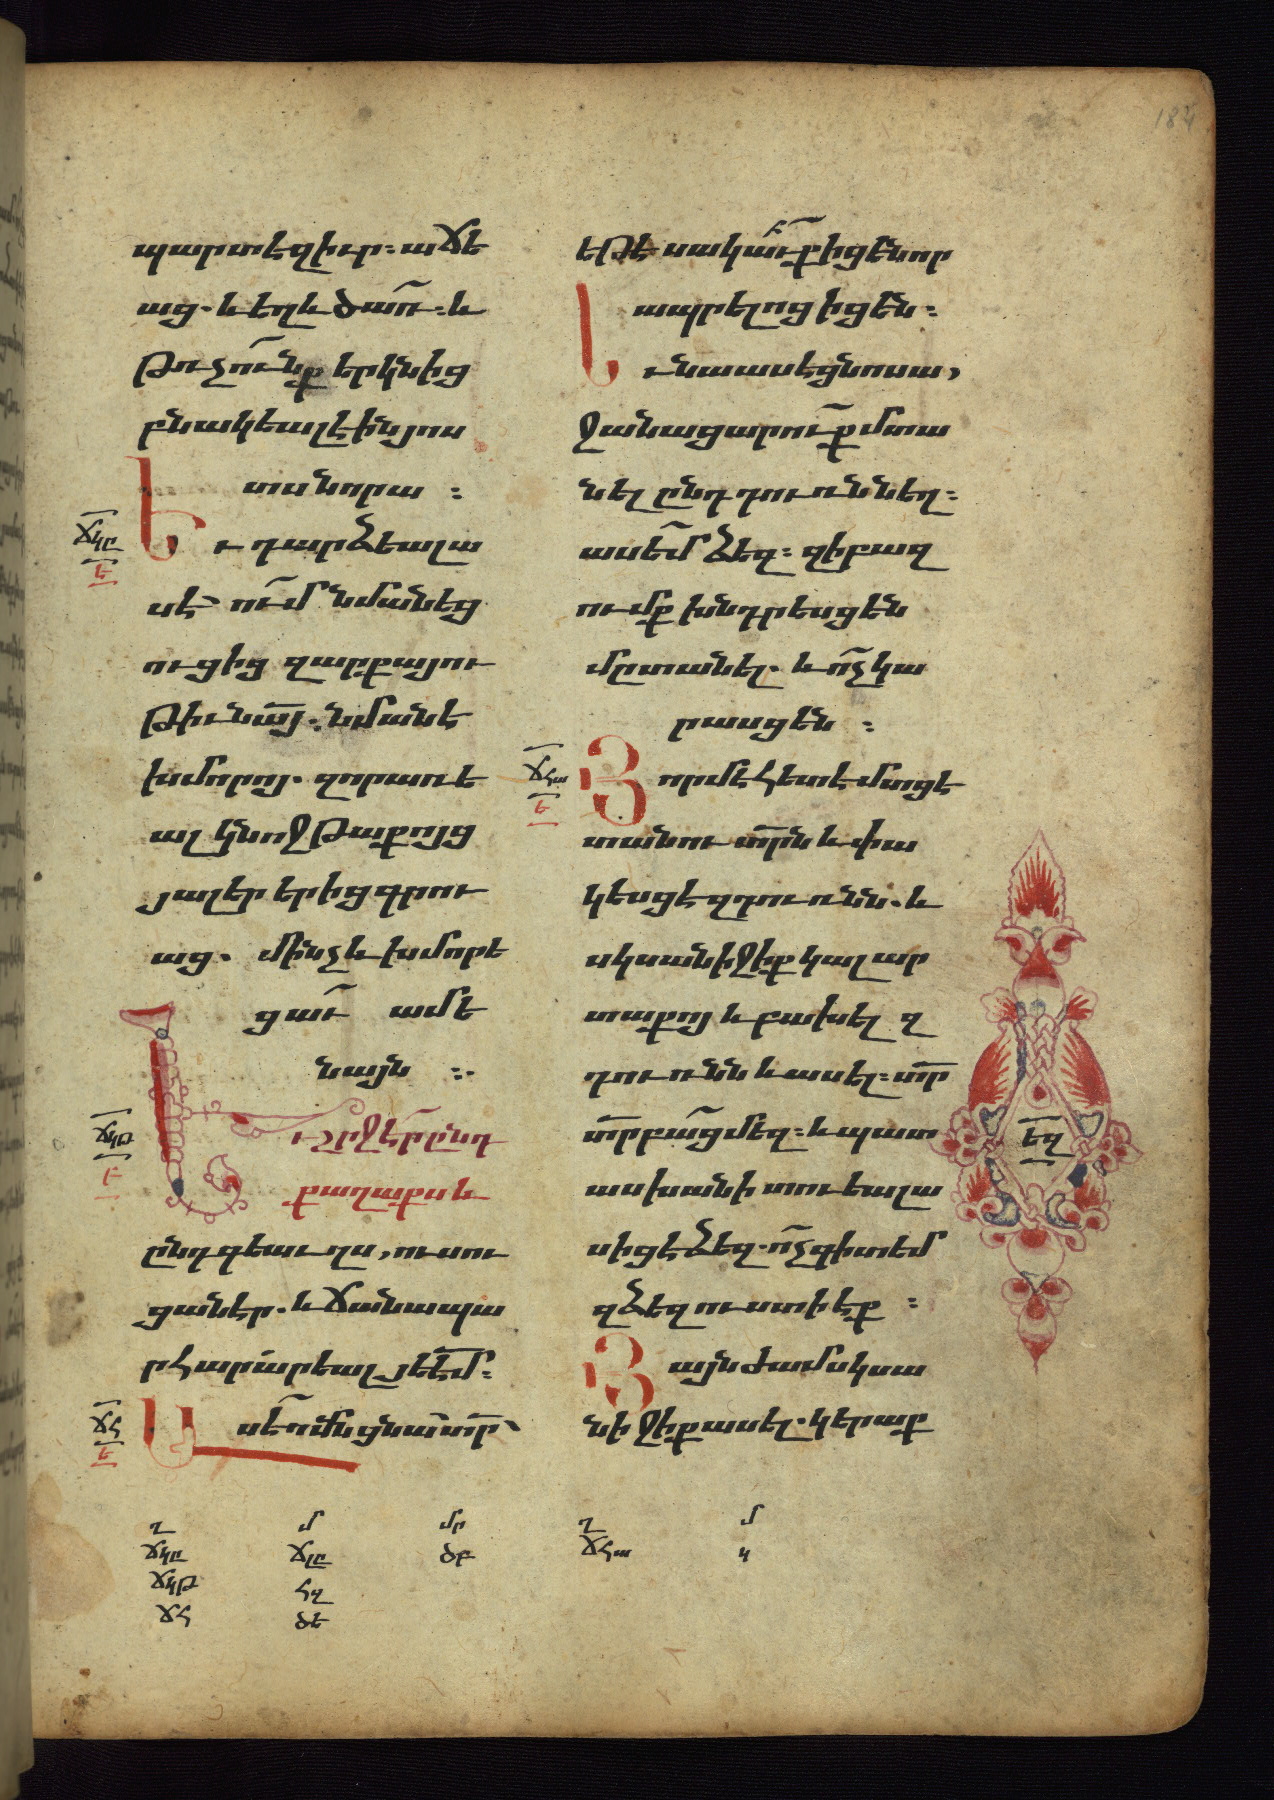 184
պարտեզիւր։ աճե
աց. և եղև ծառ։ և
թռչունք երկնից
բնակեալ էին յոս
տս նորա ։
Եւ դարձեալ ա
սէ՝ ում նմանեց
ուցից զարքայու
թիւն այ. նման է
խմորոյ. զոր առե
ալ կնոջ թաքոյց
յալեր երից գրու
աց. մինչև խմորե
ցաւ ամե
նայն ։.
Եւ շրջէր ընդ
քաղաքս և
ընդ գեաւղս, ուսու
ցանէր. և ճանապա
րհ արարեալ յեէմ։
Ասէ ոմն ցնա տր՝
ճկը
ե
ճկթ
ե
ճհ
ե
եթէ սակաւք իցեն որ
ապրելոց իցեն։
Եւ նա ասէ ցնոսա,
ջանացարուք մտա
նել ընդ դուռն նեղ։
ասեմ ձեզ։ զի բազ
ումք խնդրեսցեն
մըտանել. և ոչ կա
րասցեն ։
Յորմէ հետէ մտցէ
տանու տրն և փա
կեսցէ զդուռնն. և
սկսանիջիք կալ ար
տաքոյ և բախել զ
դուռնն և ասել։ տր
տր բաց մեզ։ և պատ
ասխանի տուեալ ա
սիցէ ձեզ. ոչ գիտեմ
զձեզ ուստի էք ։
Յայնժամ սկսա
նիջիք ասել. կերաք
ճհա
ե
եզ
ղ մ մր
ճկը ճլը ծբ
ճկթ հզ
ճհ ծե
ղ մ
ճհա կ